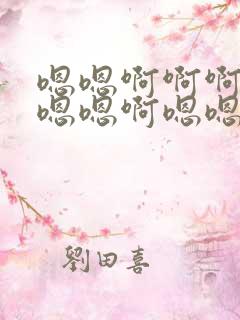 嗯嗯啊啊啊
嗯嗯啊嗯嗯
劉田喜